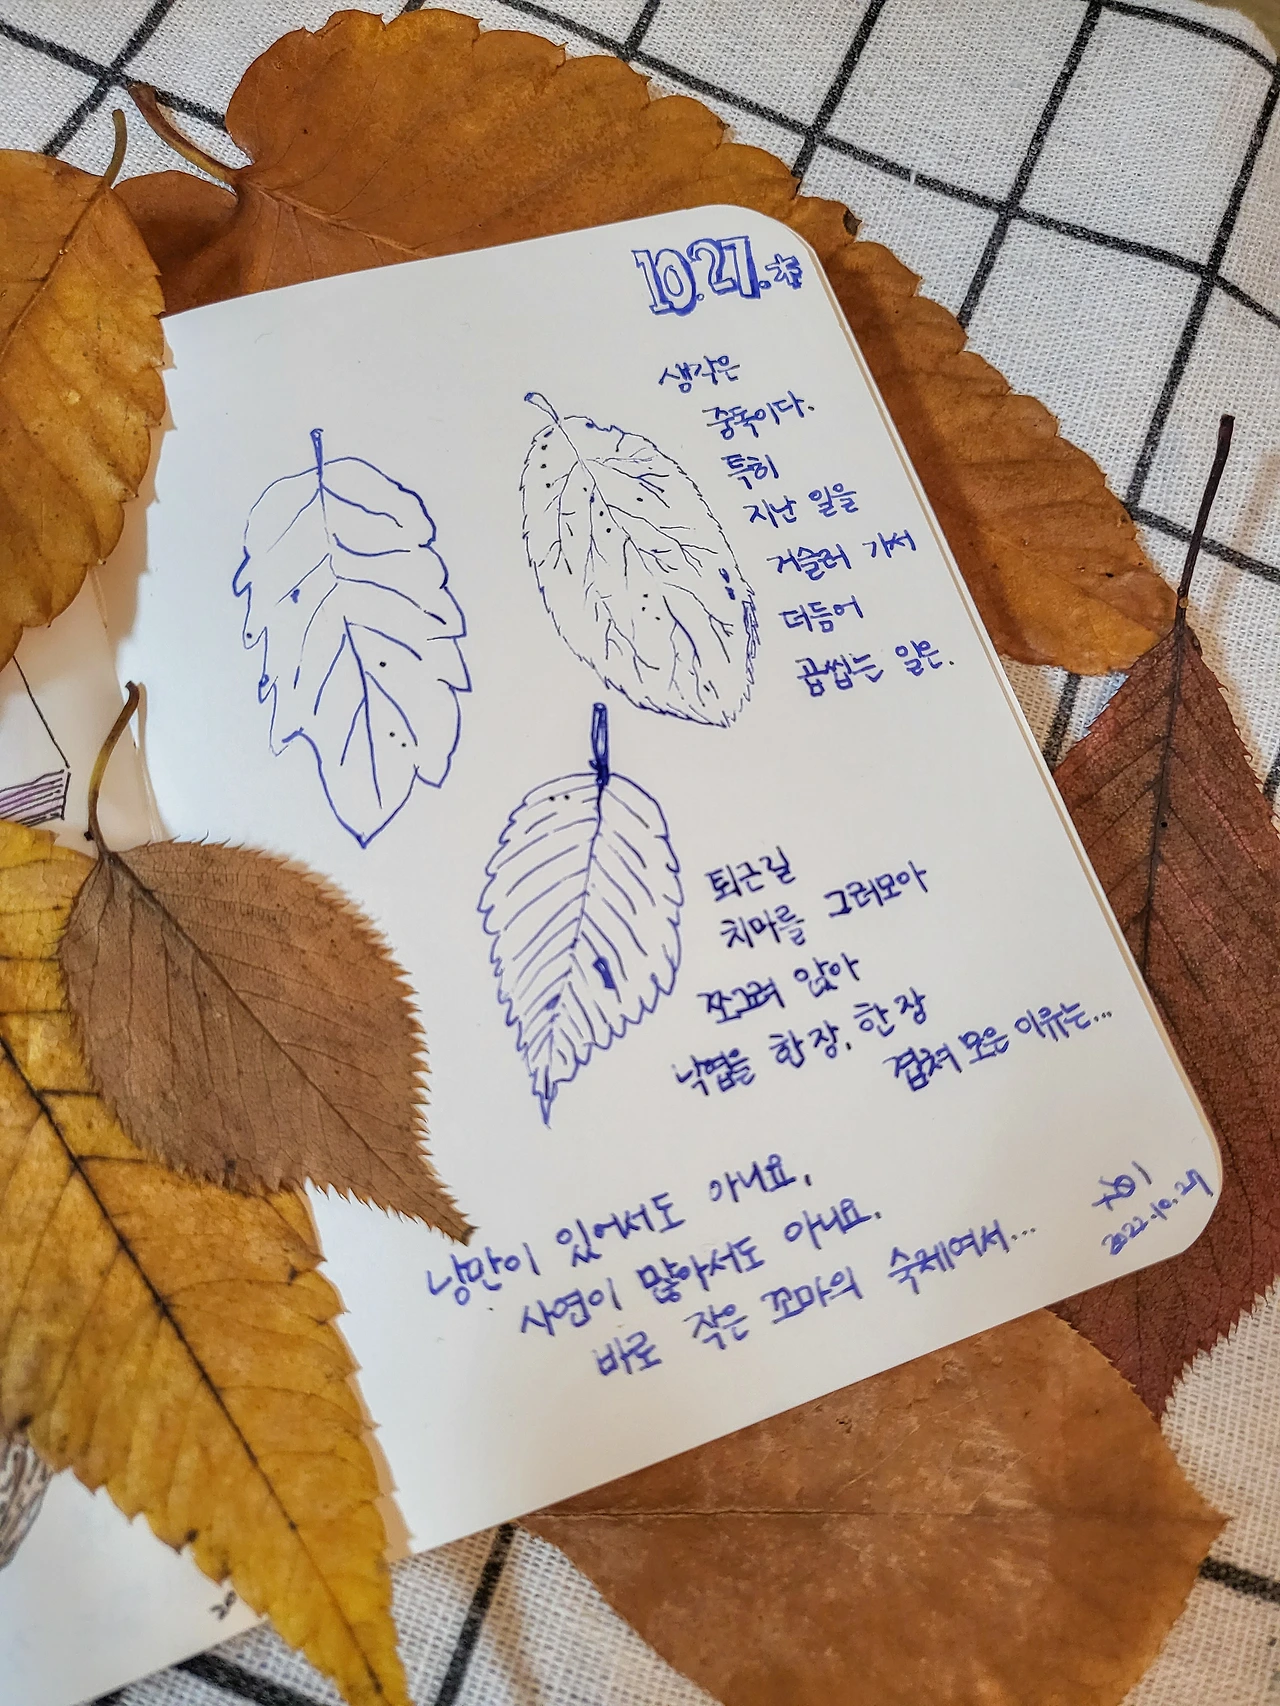 10.27.木
생각은
중독이다.
특히
지난 일을
거슬러 가서
더듬어
곱씹는 일은.
퇴근길
치마를 그러모아
쪼그려 앉아
낙엽을 한 장, 한 장
겹쳐 모은 이유는...
낭만이 있어서도 아니요,
사연이 많아서도 아니요.
바로 작은 꼬마의 숙제여서...
2022.10.27
20